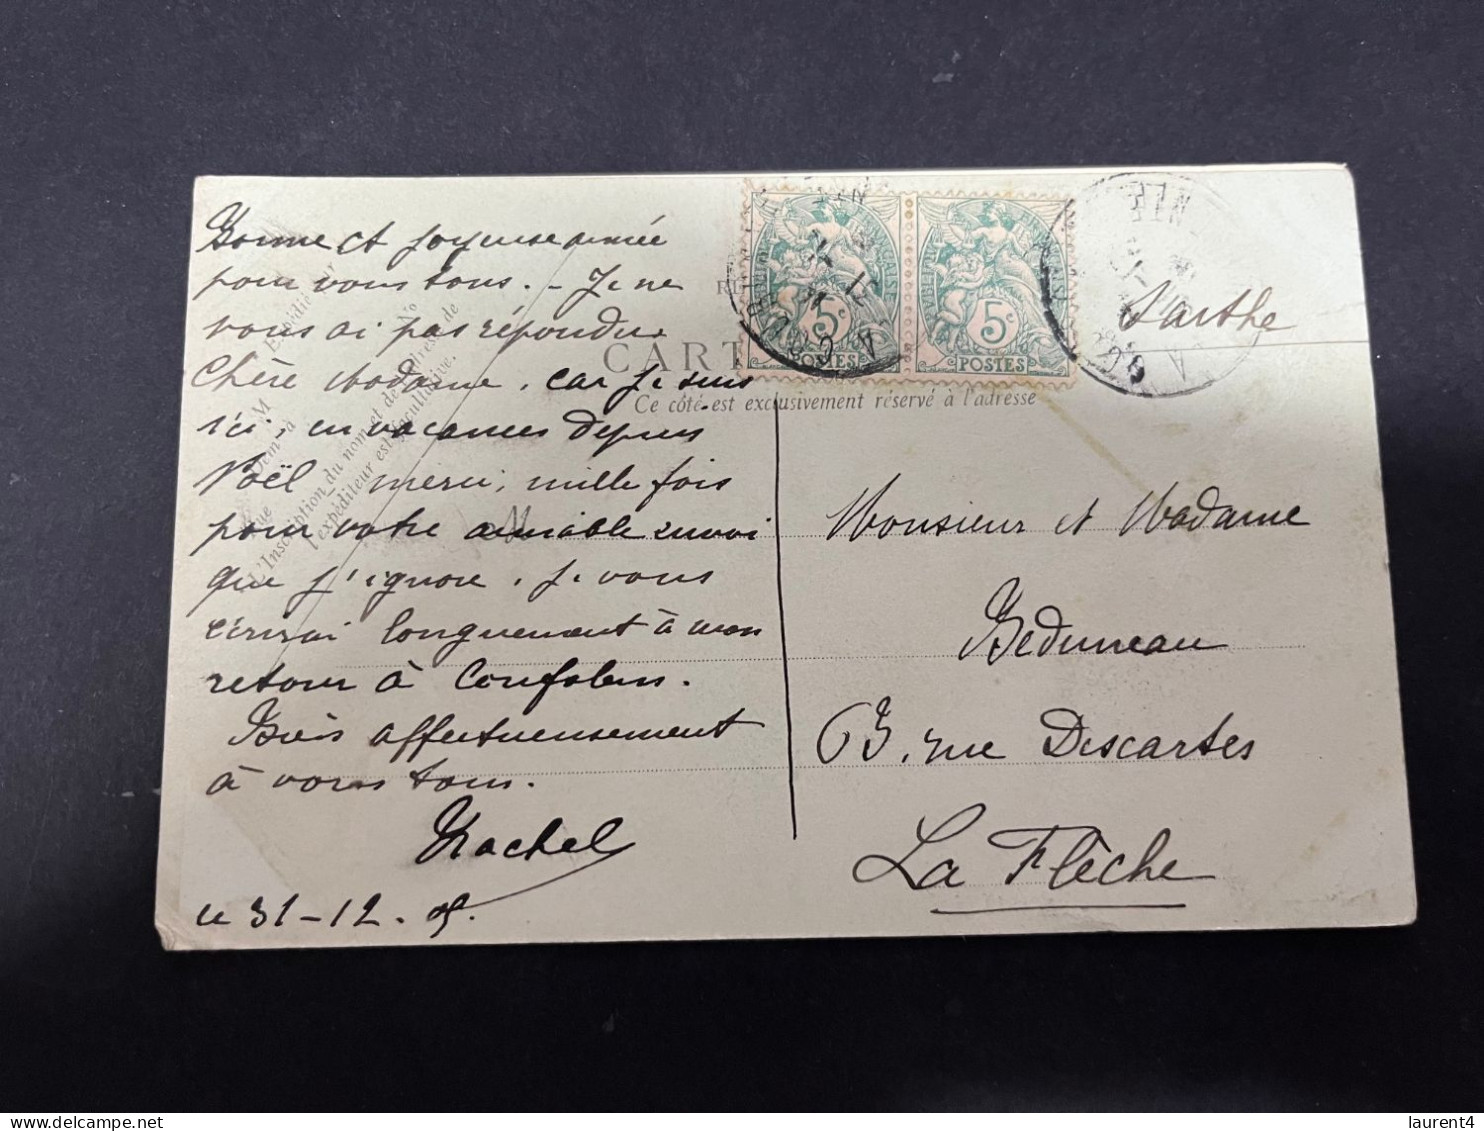 Bonne et joyeuse année
pour vous tous. - Je ne
vous ai pas répondu
Chère Madame, car je suis
ici, en vacances depuis
Noël merci, mille fois
pour votre aimable envoi
que j'ignore. Je vous
écrirai longuement à mon
retour à Confolens.
Bien affectueusement
à vous tous.
Rachel
le 31-12. 05.
CART
Ce côté est exclusivement réservé à l'adresse
5c
POSTES
5c
POSTES
Sarthe
Monsieur et Madame
Beduneau
63, rue Descartes
La Flèche
Expédié par
M
N°
L'Inscription du nom et de l'adresse de
l'expéditeur est facultative.
laurent4